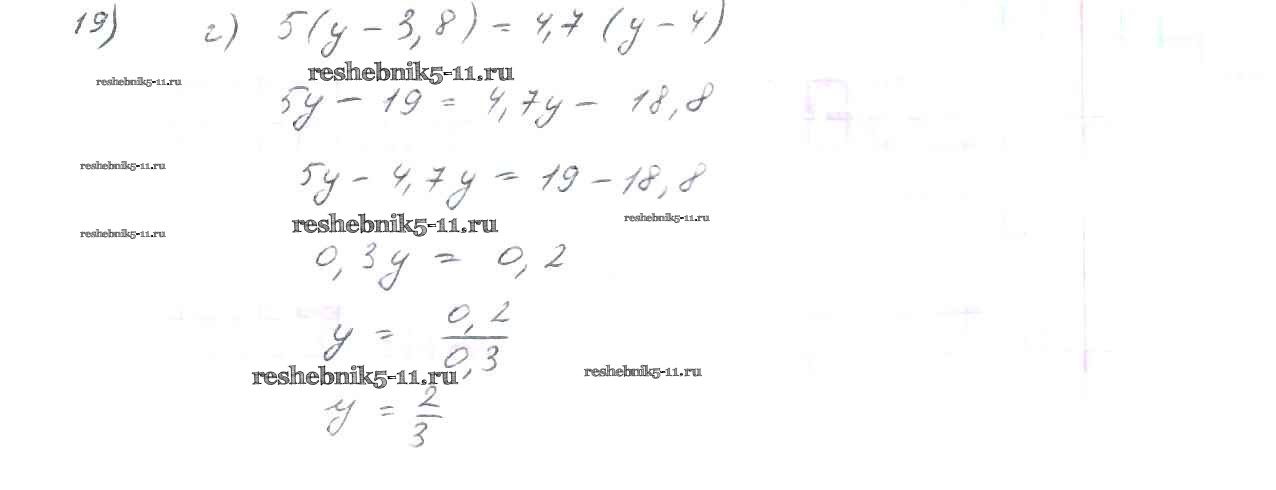 19) г) 5(y - 3,8) = 4,7 (y - 4)
reshebnik5-11.ru
reshebnik5-11.ru
5y - 19 = 4,7y - 18,8
reshebnik5-11.ru
5y - 4,7y = 19 - 18,8
reshebnik5-11.ru
reshebnik5-11.ru
reshebnik5-11.ru
0,3y = 0,2
y = 0,2/0,3
reshebnik5-11.ru
reshebnik5-11.ru
y = 2/3